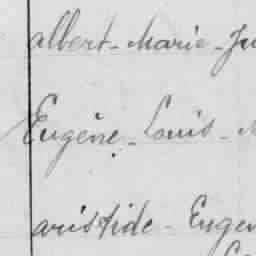 albert - Marie - Ju
Eugène - Louis - M
aristide - Eugen